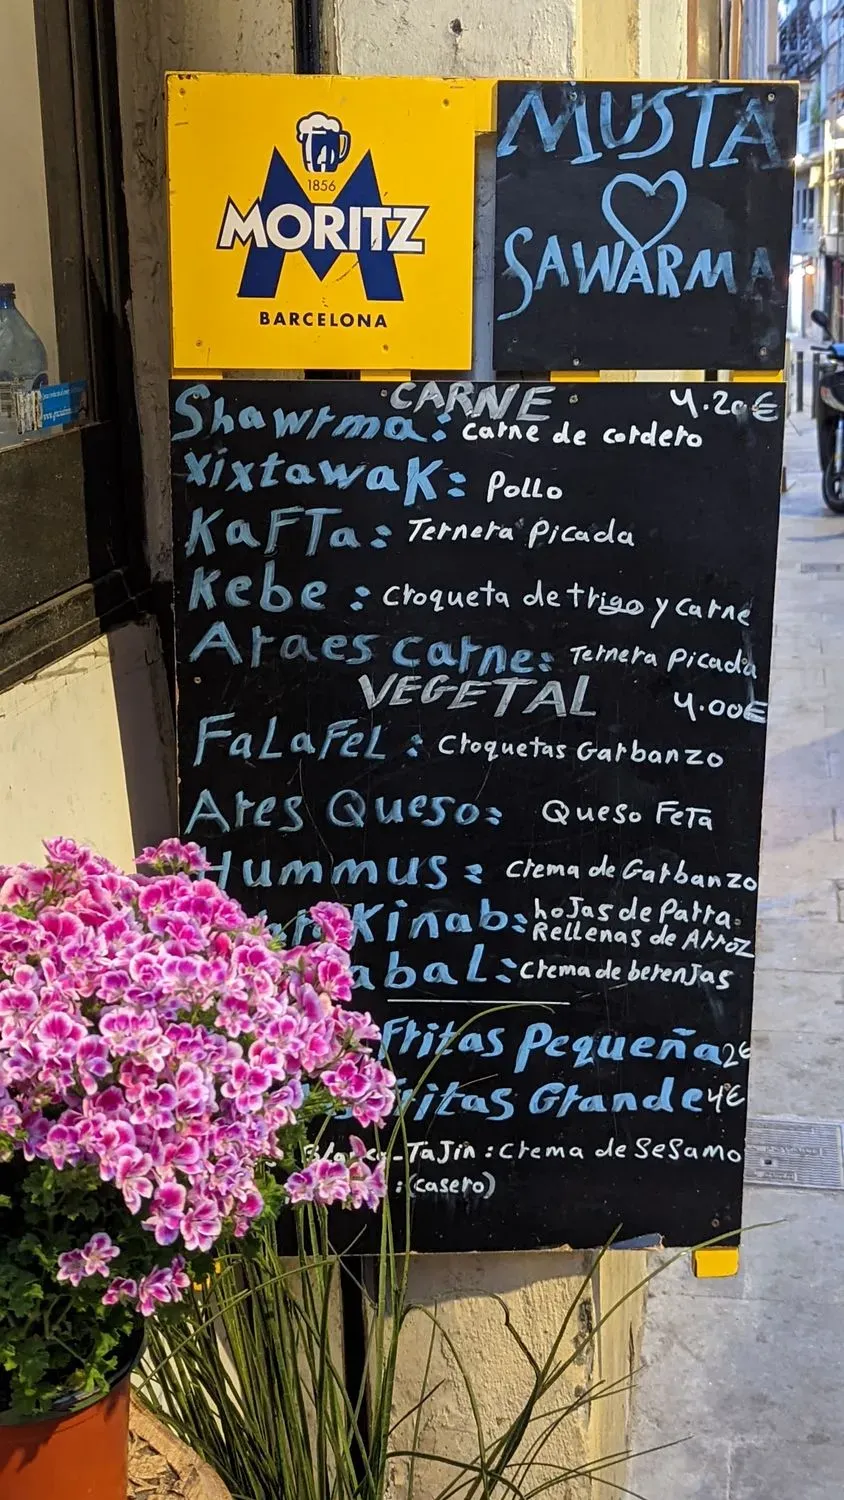 1856
MORITZ
BARCELONA
MUSTA
SAWARMA
CARNE 4.20€
Shawrma: carne de cordero
Xixtawak: Pollo
KaFTa: Ternera Picada
Kebe: croqueta de trigo y carne
Araes carne: Ternera Picada
VEGETAL 4.00€
FaLaFeL: croquetas Garbanzo
Ares Queso: Queso FeTa
Hummus: crema de Garbanzo
Kinab: hojas de Parra
Rellenas de Arroz
abaL: crema de berenjas
Fritas Pequeña 2€
Fritas Grande 4€
TaJin: crema de SeSamo
:(casero)